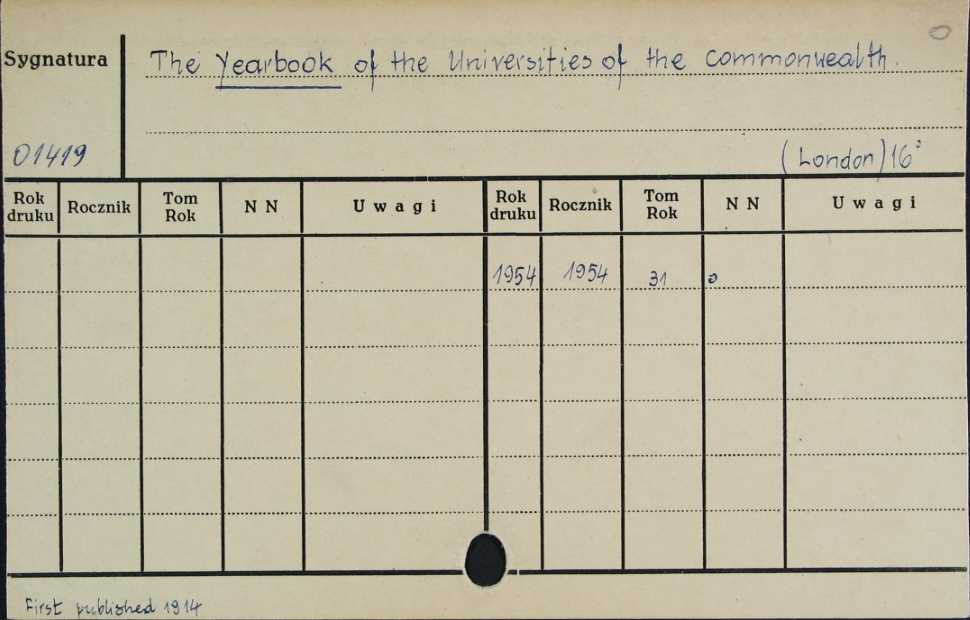 Sygnatura
The Yearbook of the Universities of the Commonwealth.
01419
(London) 16°
Rok druku Rocznik Tom Rok NN Uwagi Rok druku Rocznik Tom Rok NN Uwagi
1954 1954 31
First published 1914